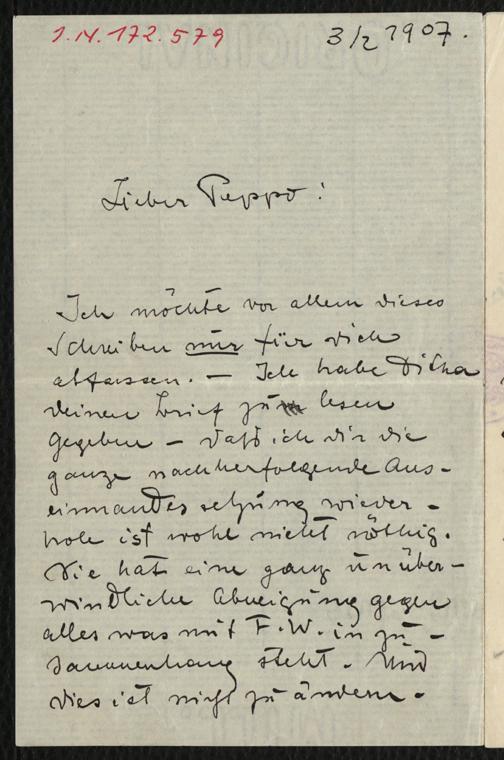 I.N. 172.579
3/2 1907.
Lieber Peppo!
Ich möchte vor allem dieses
Schreiben nur für dich
abfassen. – Ich habe Ditha
deinen Brief zu lesen
gegeben – daß ich dir die
ganze nachherfolgende Aus-
einandersetzung wieder-
hole ist wohl nicht nöthig.
Sie hat eine ganz unüber-
windliche Abneigung gegen
alles was mit F.W. in zu-
sammenhang steht. Und
dies ist nicht zu ändern.